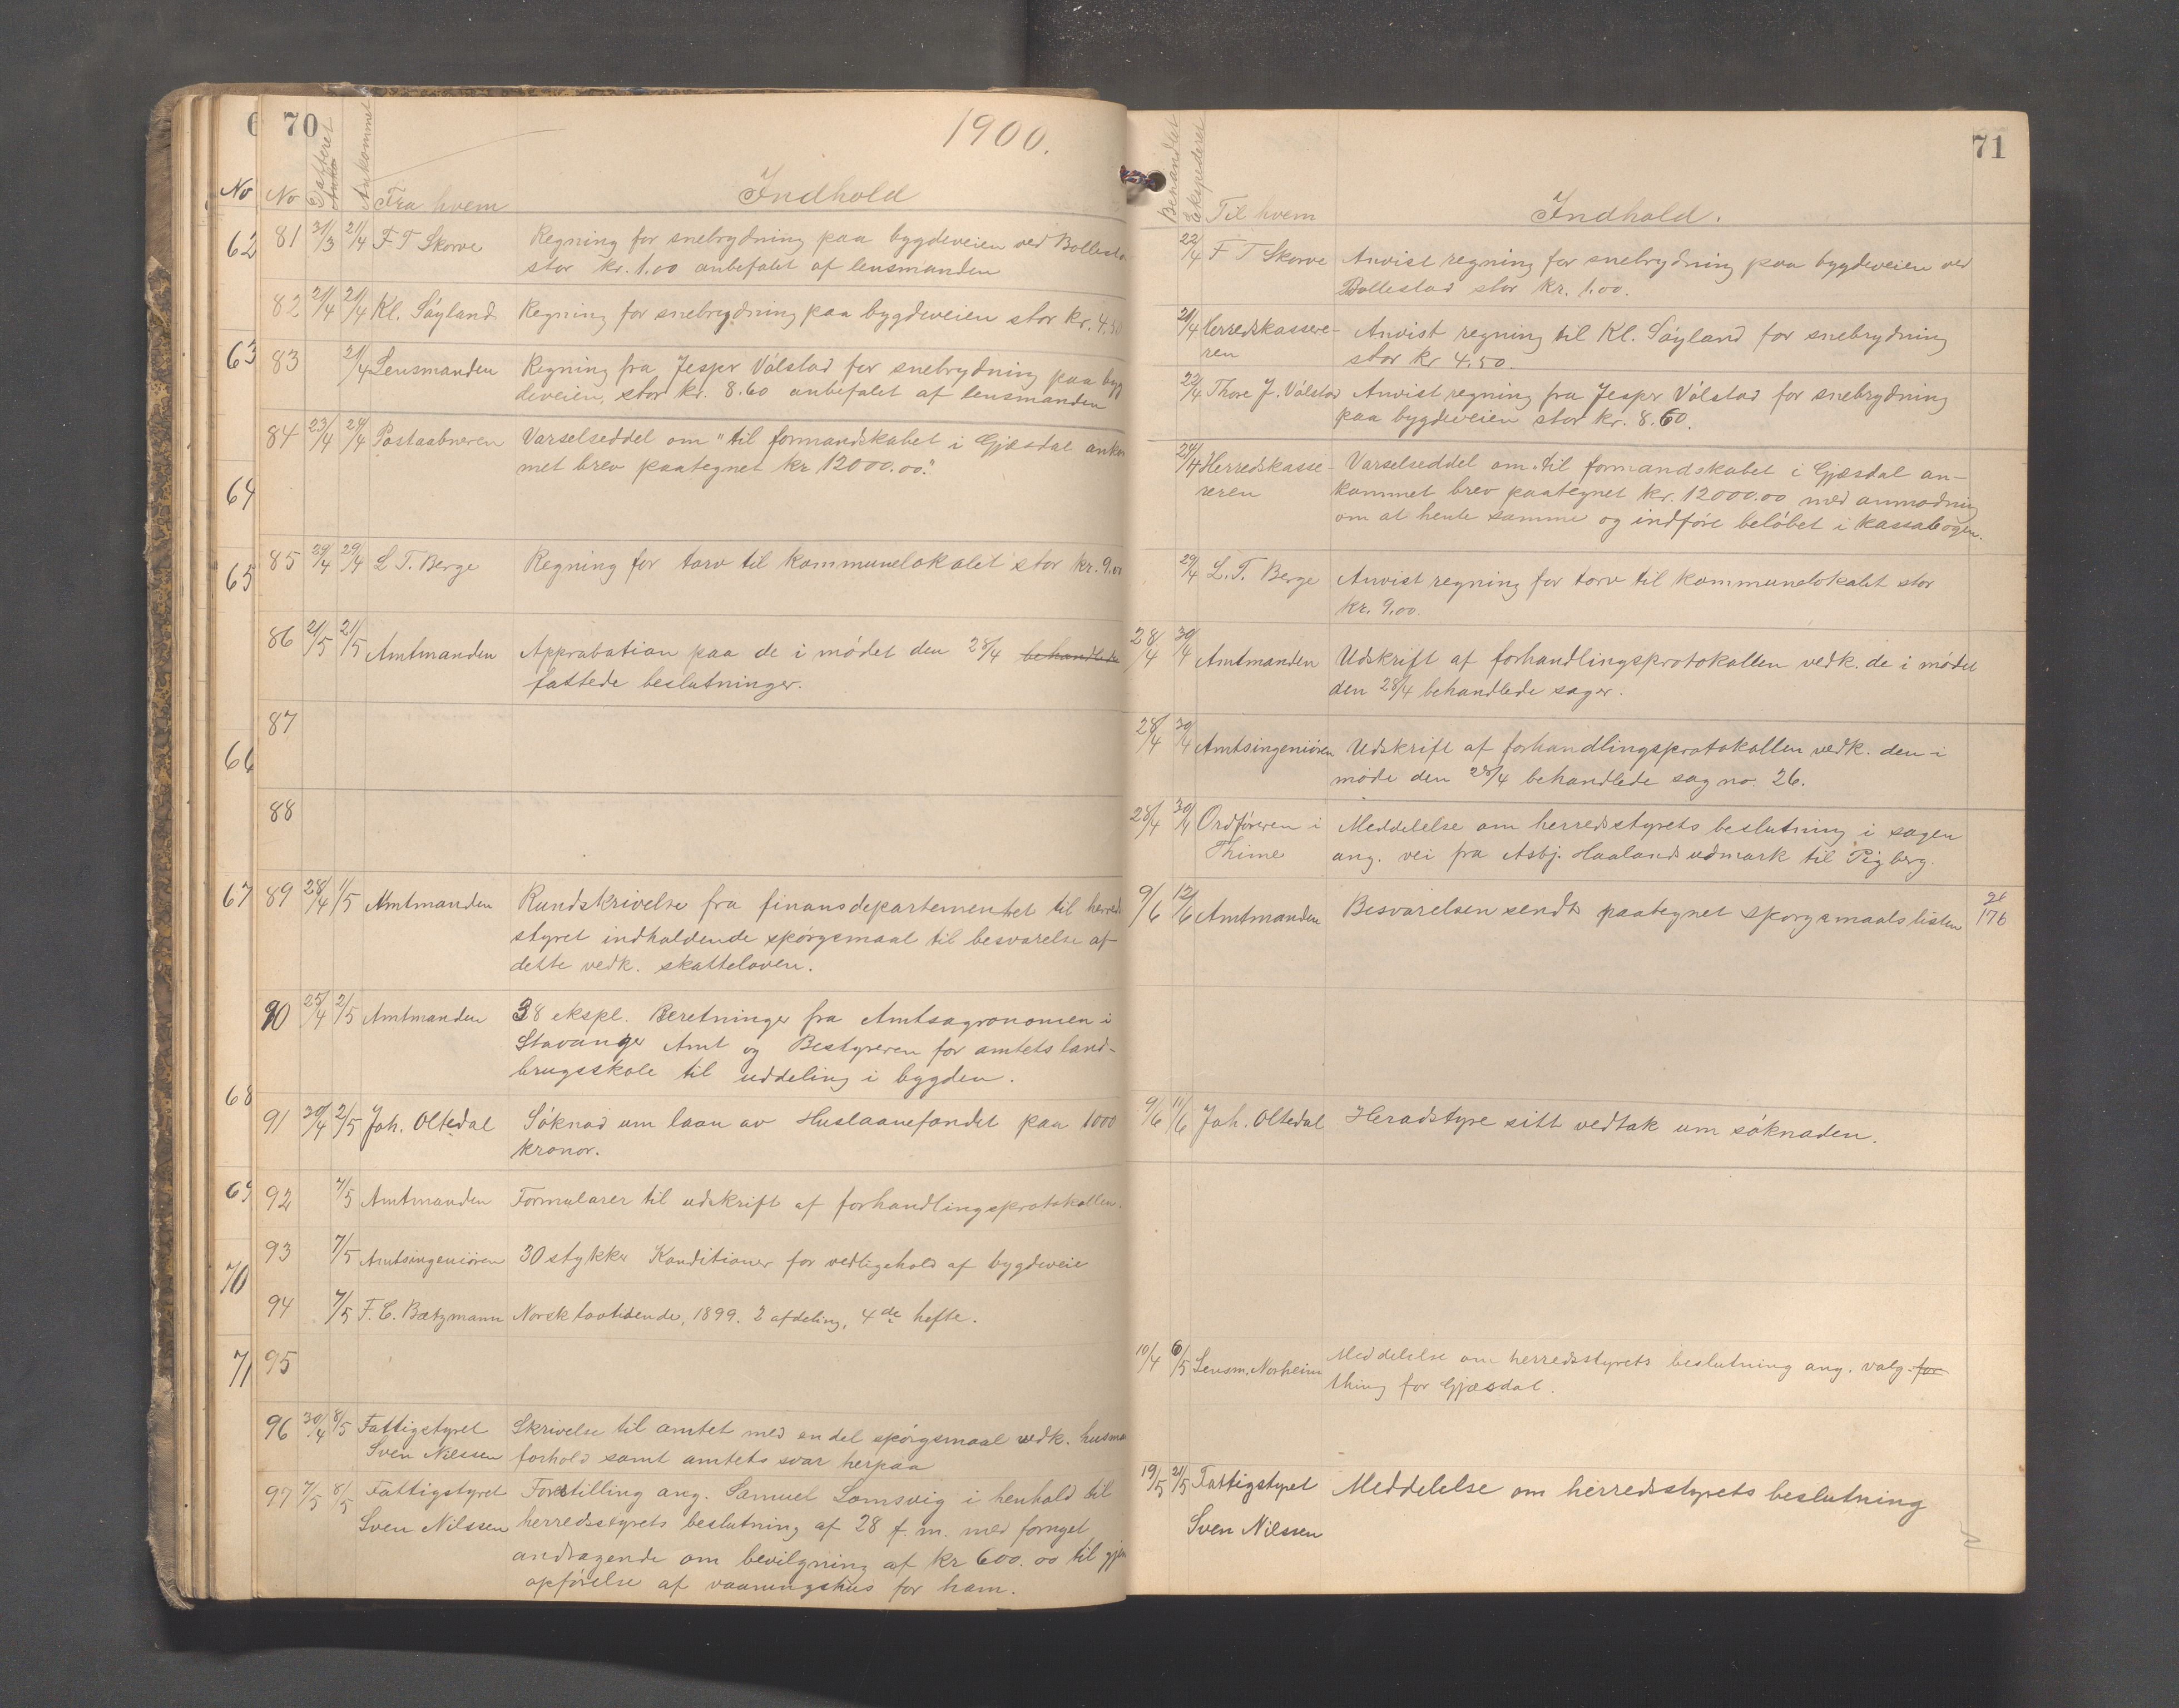 70
1900.
No
No Datteret Ankommet Fra hvem Indhold
62
81 31/3 21/4 F. T Skorve Regning for snebrydning paa bygdeveien ved
stor kr. 1.00 anbefalet af lensmanden
82 21/4 21/4 Kl. Söyland Regning for snebrydning paa bygdeveien stor kr. 4.50
63
83 21/4 Lensmanden Regning fra Jesper Válstad for snebrydning paa byg
deveien, stor kr. 8.60 anbefalet af lensmanden
84 23/4 24/4 Postaabneren Varselseddel om "til formandskabet i Gjæsdal ankom
met brev paategnet kr 12000.00."
64
65
85 29/4 29/4 L T. Berge Regning for torv til kommunelokalet stor kr. 9.00
86 21/5 21/5 Amtmanden Approbation paa de i mödet den 28/4 behandlede
fattede beslutninger.
87
66
88
67
89 28/4 1/5 Amtmanden Rundskrivelse fra finansdepartementet til herreds
styret indholdende spörgsmaal til besvarelse af
dette vedk. skatteloven.
90 25/4 2/5 Amtmanden 38 ekspl. Beretninger fra Amtsagronomen i
Stavanger Amt og Bestyreren for amtets land-
brugsskole til uddeling i bygden.
68
91 30/4 2/5 Joh. Oltedal Söknad um laan av Huslaanefondet paa 1000
kronor.
69
92 7/5 Amtmanden Formularer til udskrift af forhandlingsprotokollen.
93 7/5 Amtsingeniören 30 stykker Konditioner for vedligehold af bygdeveie
70
94 7/5 F. C. Bætzmann Norsk lovtidende, 1899. 2 afdeling, 4de hefte.
71
95
96 30/4 8/5 Fattigstyret Skrivelse til amtet med en del spörgsmaal vedk. husma
Sven Nilssen forhold samt amtets svar herpaa
97 7/5 8/5 Fattigstyret Forestilling ang. Samuel Lomsvig i henhold til
Sven Nilssen herredsstyrets beslutning af 28 f. m. med fornyet
andragende om bevilgning af kr 600.00 til
opförelse af vaaningshus for ham.
71
Behandlet Ekspederet Til hvem Indhold.
22/4 F T Skorve Anvist regning for snebrydning paa bygdeveien ved
Bollestad stor kr. 1.00.
21/4 Herredskassere- Anvist regning til Kl. Söyland for snebrydning
ren stor kr 4.50.
22/4 Thore J. Válstad Anvist regning fra Jesper Válstad for snebrydning
paa bygdeveien stor kr. 8.60.
24/4 Herredskasse- Varselseddel om "til formandskabet i Gjæsdal an-
reren kommet brev paategnet kr. 12000.00 med anmodning
om at hente samme og indföre belöbet i kassabogen.
29/4 L. T. Berge Anvist regning for torv til kommunelokalet stor
kr. 9.00.
28/4 30/4 Amtmanden Udskrift af forhandlingsprotokollen vedk. de i mödet
den 28/4 behandlede sager.
28/4 30/4 Amtsingeniören Udskrift af forhandlingsprotokollen vedk. den i
möde den 28/4 behandlede sag no. 26.
28/4 30/4 Ordföreren i Meddelelse om herredsstyrets beslutning i sagen
Thime ang. vei fra Asbj. Haalands udmark til Pigberg.
9/6 12/6 Amtmanden Besvarelsen sendt paategnet spörgsmaalslisten 176
9/6 11/6 Joh. Oltedal Heradstyre sitt vedtak um söknaden.
10/4 6/5 Lensm. Norheim Meddelelse om herredsstyrets beslutning ang. valg- for
thing for Gjæsdal.
19/5 21/5 Fattigstyret Meddelelse om herredsstyrets beslutning
Sven Nilssen